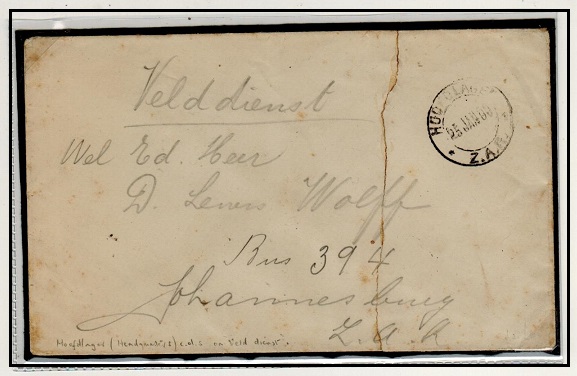 Velddienst
HOOFDLAGER
Z.A.R.
Wel Ed. Heer
D. Lewis Wolff
Bus 394
Johannesburg
Z. A. R
Hoofdlager (Headquarters) c.d.s on Veld dienst.